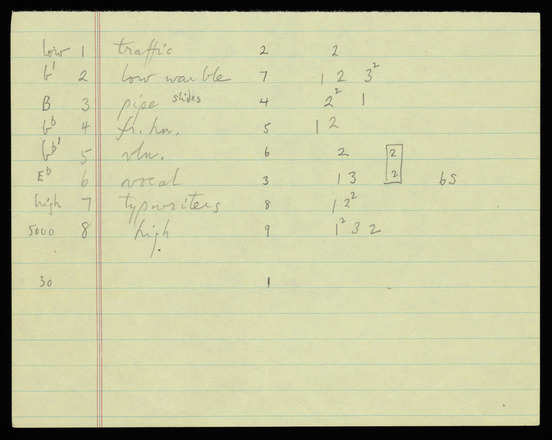 low 1 traffic 2 2
b' 2 low warble 7 1 2 3²
B 3 pipe slides 4 2² 1
G♭ 4 fr. hn. 5 1 2
G♭' 5 vln. 6 2 2
E♭ 6 vocal 3 1 3 2 bs
high 7 typwriters 8 1 2²
5000 8 high 9 1² 3 2
30 1